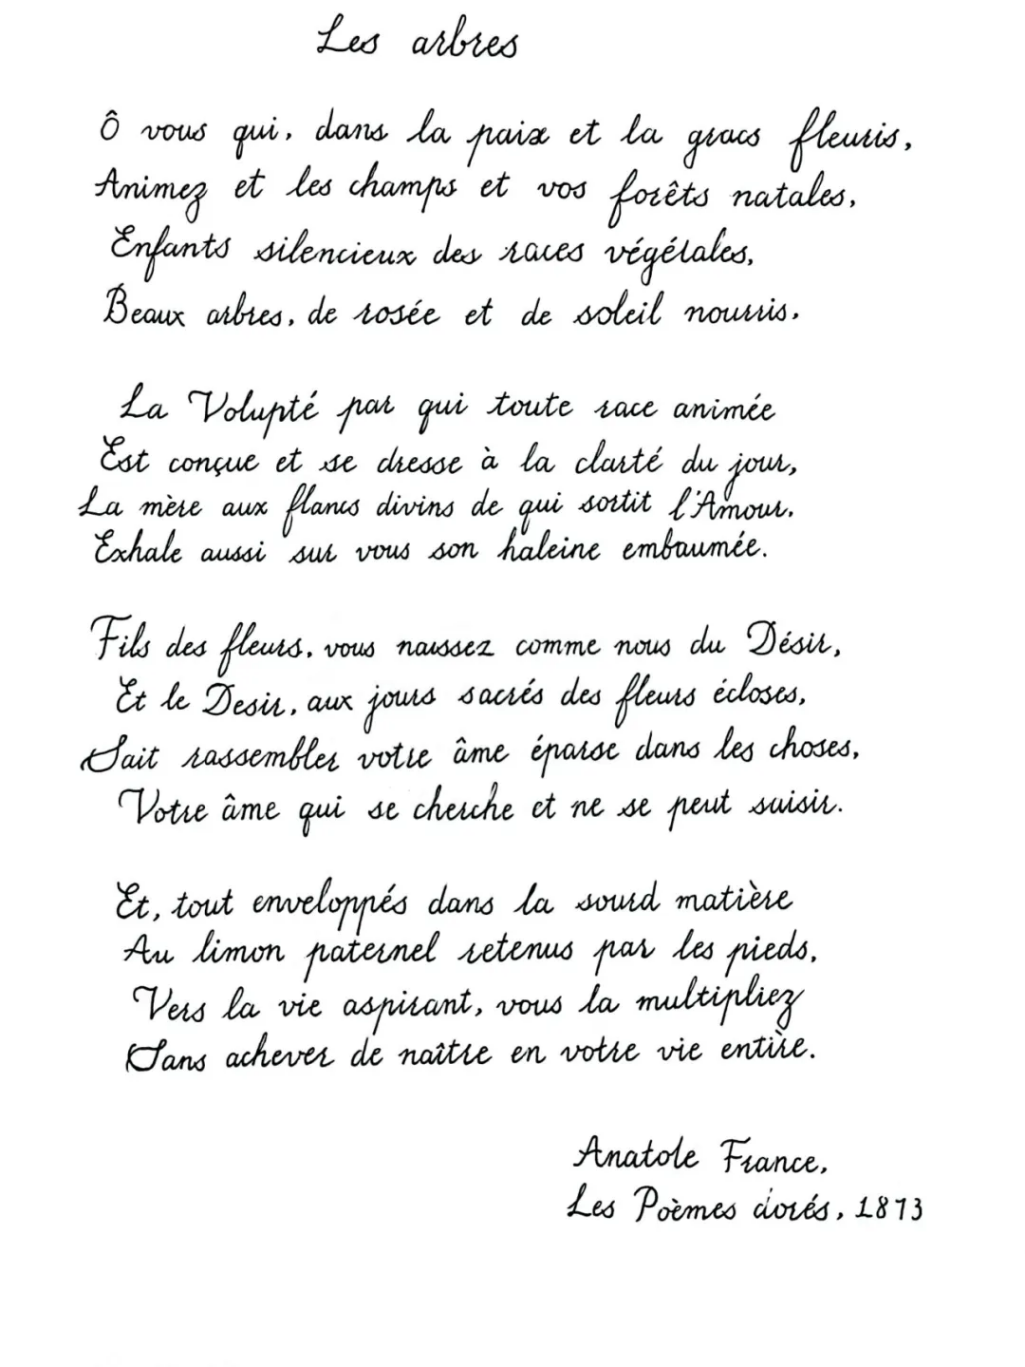 Les arbres
Ô vous qui, dans la paix et la gracs fleuris,
Animez et les champs et vos forêts natales,
Enfants silencieux des races végétales,
Beaux arbres, de rosée et de soleil nourris,
La Volupté par qui toute race animée
Est conçue et se dresse à la clarté du jour,
La mère aux flancs divins de qui sortit l'Amour,
Exhale aussi sur vous son haleine embaumée.
Fils des fleurs, vous naissez comme nous du Désir,
Et le Desir, aux jours sacrés des fleurs écloses,
Sait rassembler votre âme éparse dans les choses,
Votre âme qui se cherche et ne se peut saisir.
Et, tout enveloppés dans la sourd matière
Au limon paternel retenus par les pieds,
Vers la vie aspirant, vous la multipliez
Sans achever de naître en votre vie entière.
Anatole France,
Les Poèmes dorés, 1873